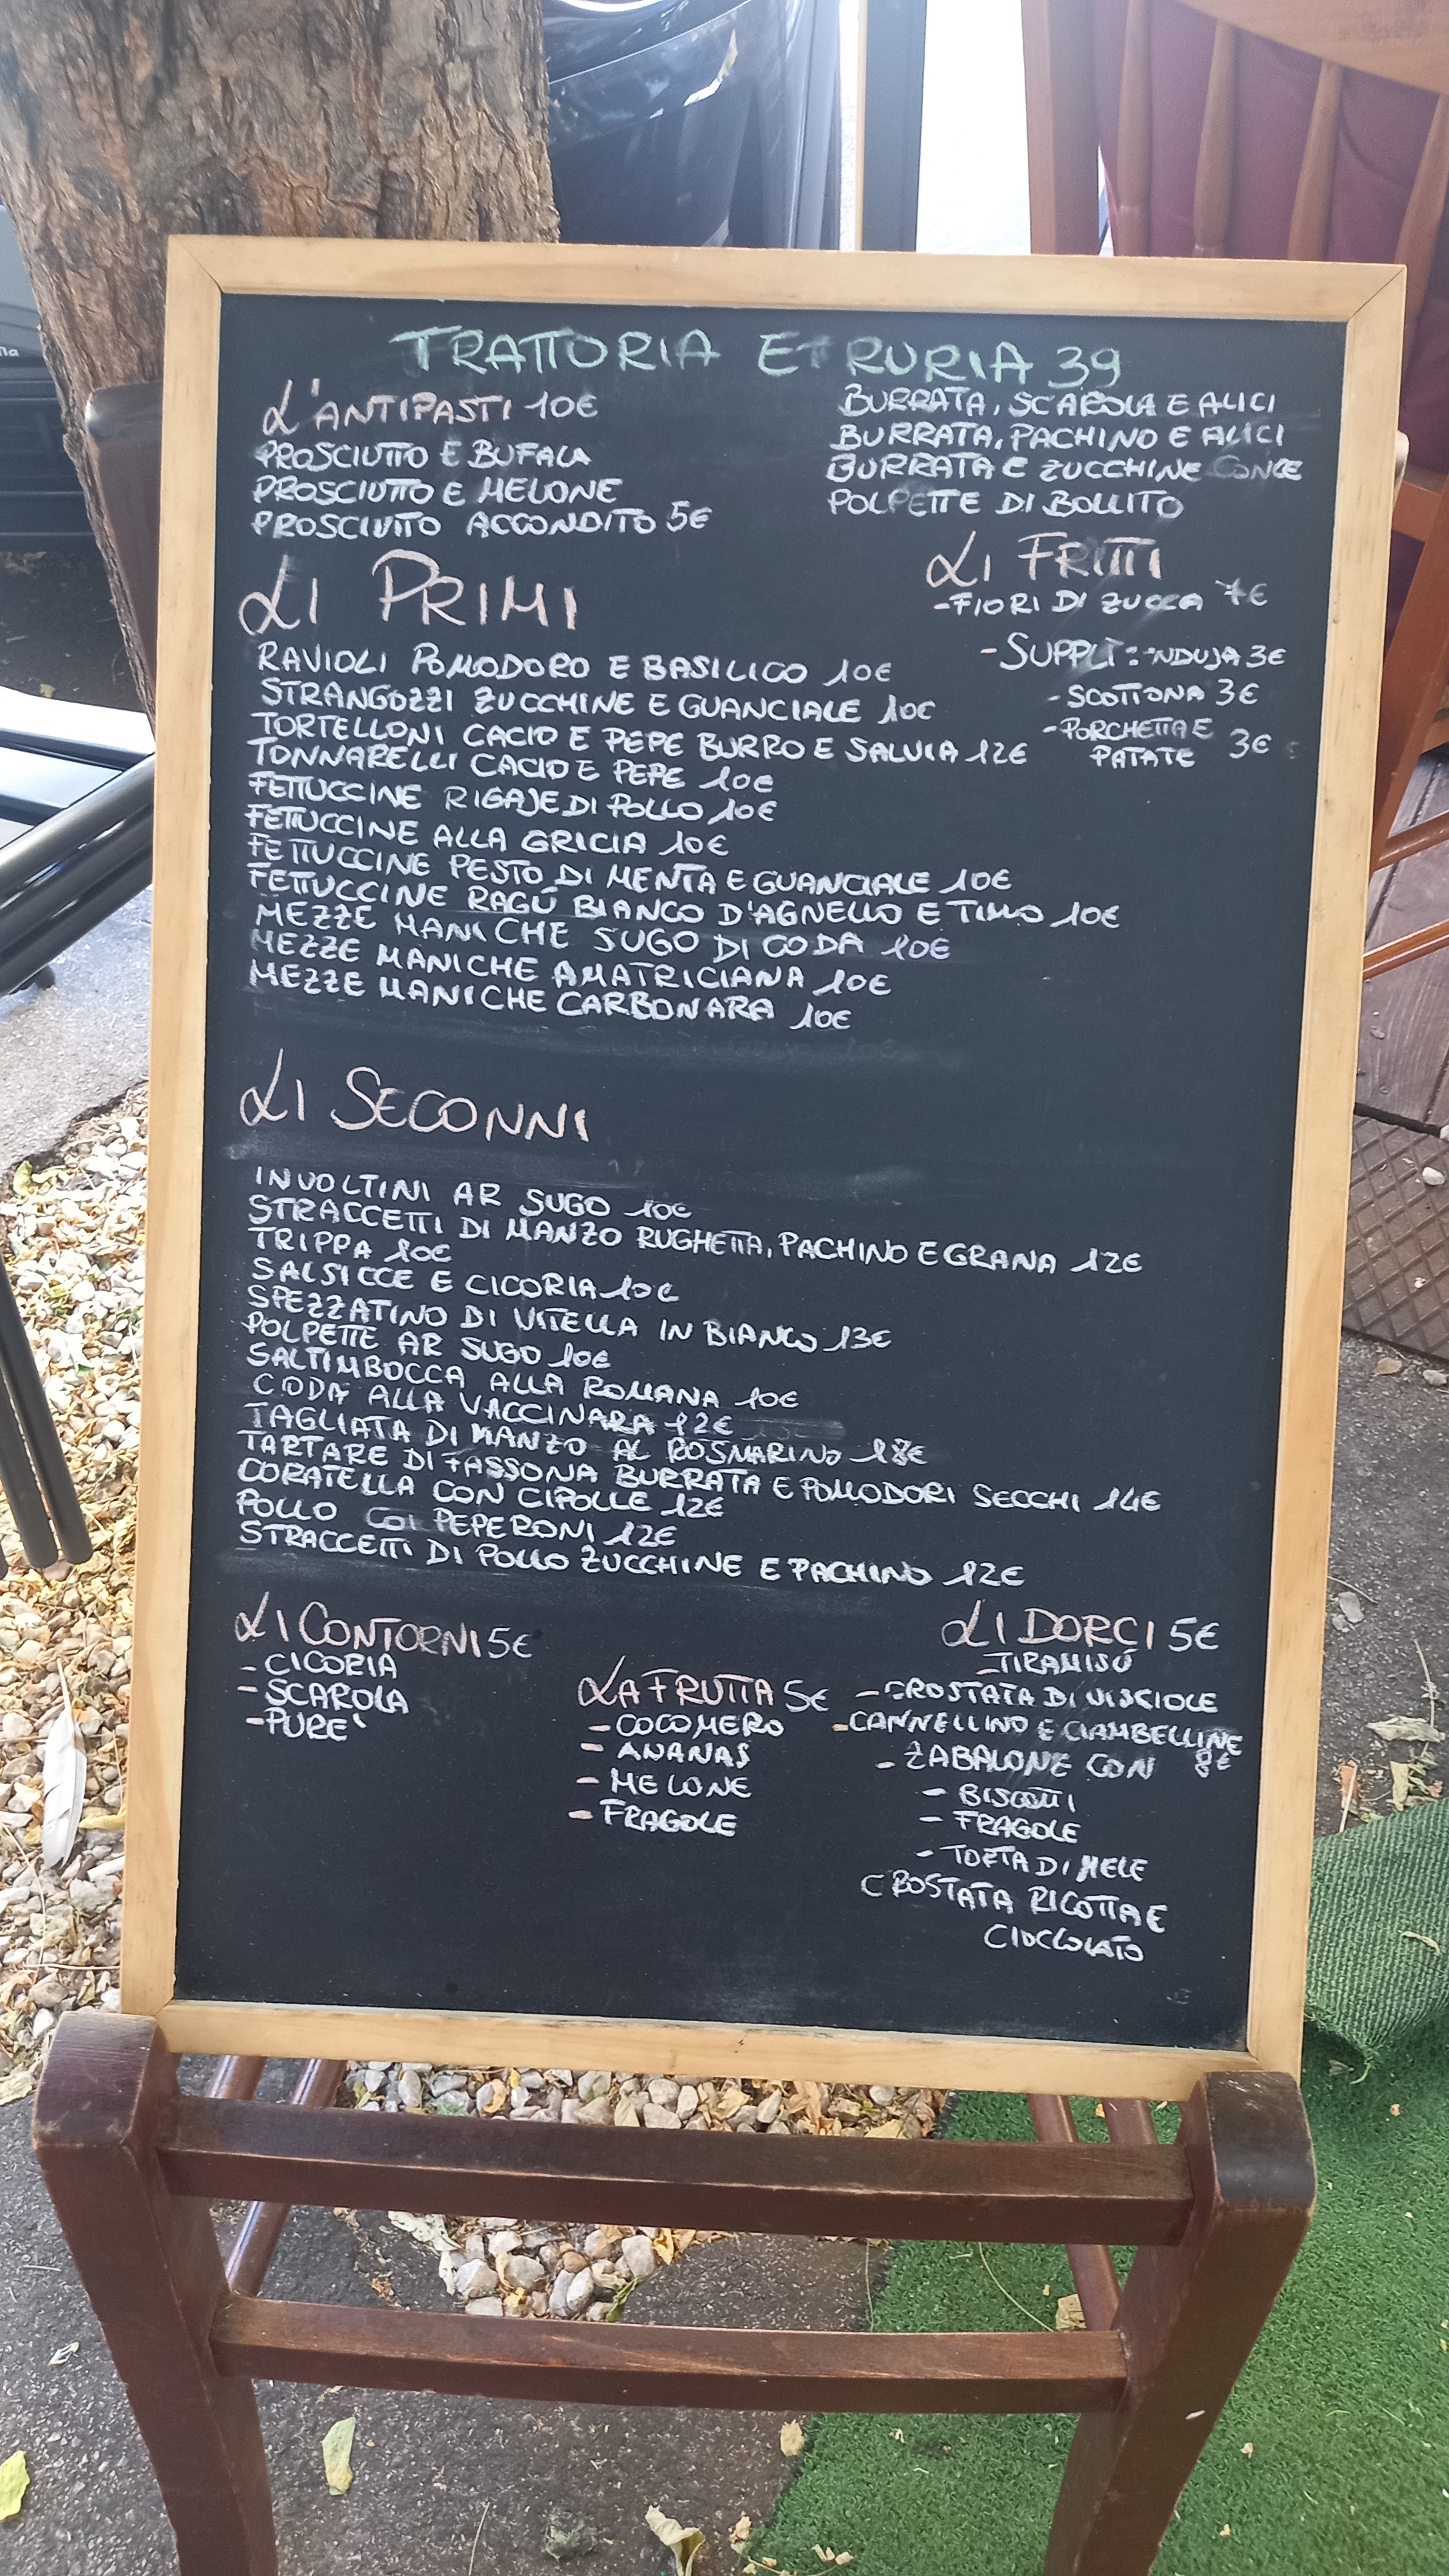 TRATTORIA ETRURIA 39
L'ANTIPASTI 10€
PROSCIUTTO E BUFALA
PROSCIUTTO E MELONE
PROSCIUTTO ACCONDITO 5€
BURRATA, SCAROLA E ALICI
BURRATA, PACHINO E ALICI
BURRATA E ZUCCHINE CONCE
POLPETTE DI BOLLITO
LI FRITTI
-FIORI DI ZUCCA 7€
-SUPPLÌ: -NDUJA 3€
-SCOTTONA 3€
-PORCHETTA E
PATATE 3€
LI PRIMI
RAVIOLI POMODORO E BASILICO 10€
STRANGOZZI ZUCCHINE E GUANCIALE 10€
TORTELLONI CACIO E PEPE BURRO E SALVIA 12€
TONNARELLI CACIO E PEPE 10€
FETTUCCINE RIGAJE DI POLLO 10€
FETTUCCINE ALLA GRICIA 10€
FETTUCCINE PESTO DI MENTA E GUANCIALE 10€
FETTUCCINE RAGÙ BIANCO D'AGNELLO E TIMO 10€
MEZZE MANICHE SUGO DI CODA 10€
MEZZE MANICHE AMATRICIANA 10€
MEZZE MANICHE CARBONARA 10€
LI SECONNI
INVOLTINI AR SUGO 10€
STRACCETTI DI MANZO RUGHETTA, PACHINO E GRANA 12€
TRIPPA 10€
SALSICCE E CICORIA 10€
SPEZZATINO DI VITELLA IN BIANCO 13€
POLPETTE AR SUGO 10€
SALTIMBOCCA ALLA ROMANA 10€
CODA ALLA VACCINARA 12€
TAGLIATA DI MANZO AL ROSMARINO 18€
TARTARE DI FASSONA BURRATA E POMODORI SECCHI 14€
CORATELLA CON CIPOLLE 12€
POLLO COI PEPERONI 12€
STRACCETTI DI POLLO ZUCCHINE E PACHINO 12€
LI CONTORNI 5€
- CICORIA
- SCAROLA
- PURE'
LA FRUTTA 5€
- COCOMERO
- ANANAS
- MELONE
- FRAGOLE
LI DORCI 5€
-TIRAMISÙ
-CROSTATA DI VISCIOLE
-CANNELLINO E CIAMBELLINE
8€
- ZABALONE CON
- BISCOTTI
- FRAGOLE
- TORTA DI MELE
CROSTATA RICOTTA E
CIOCCOLATO